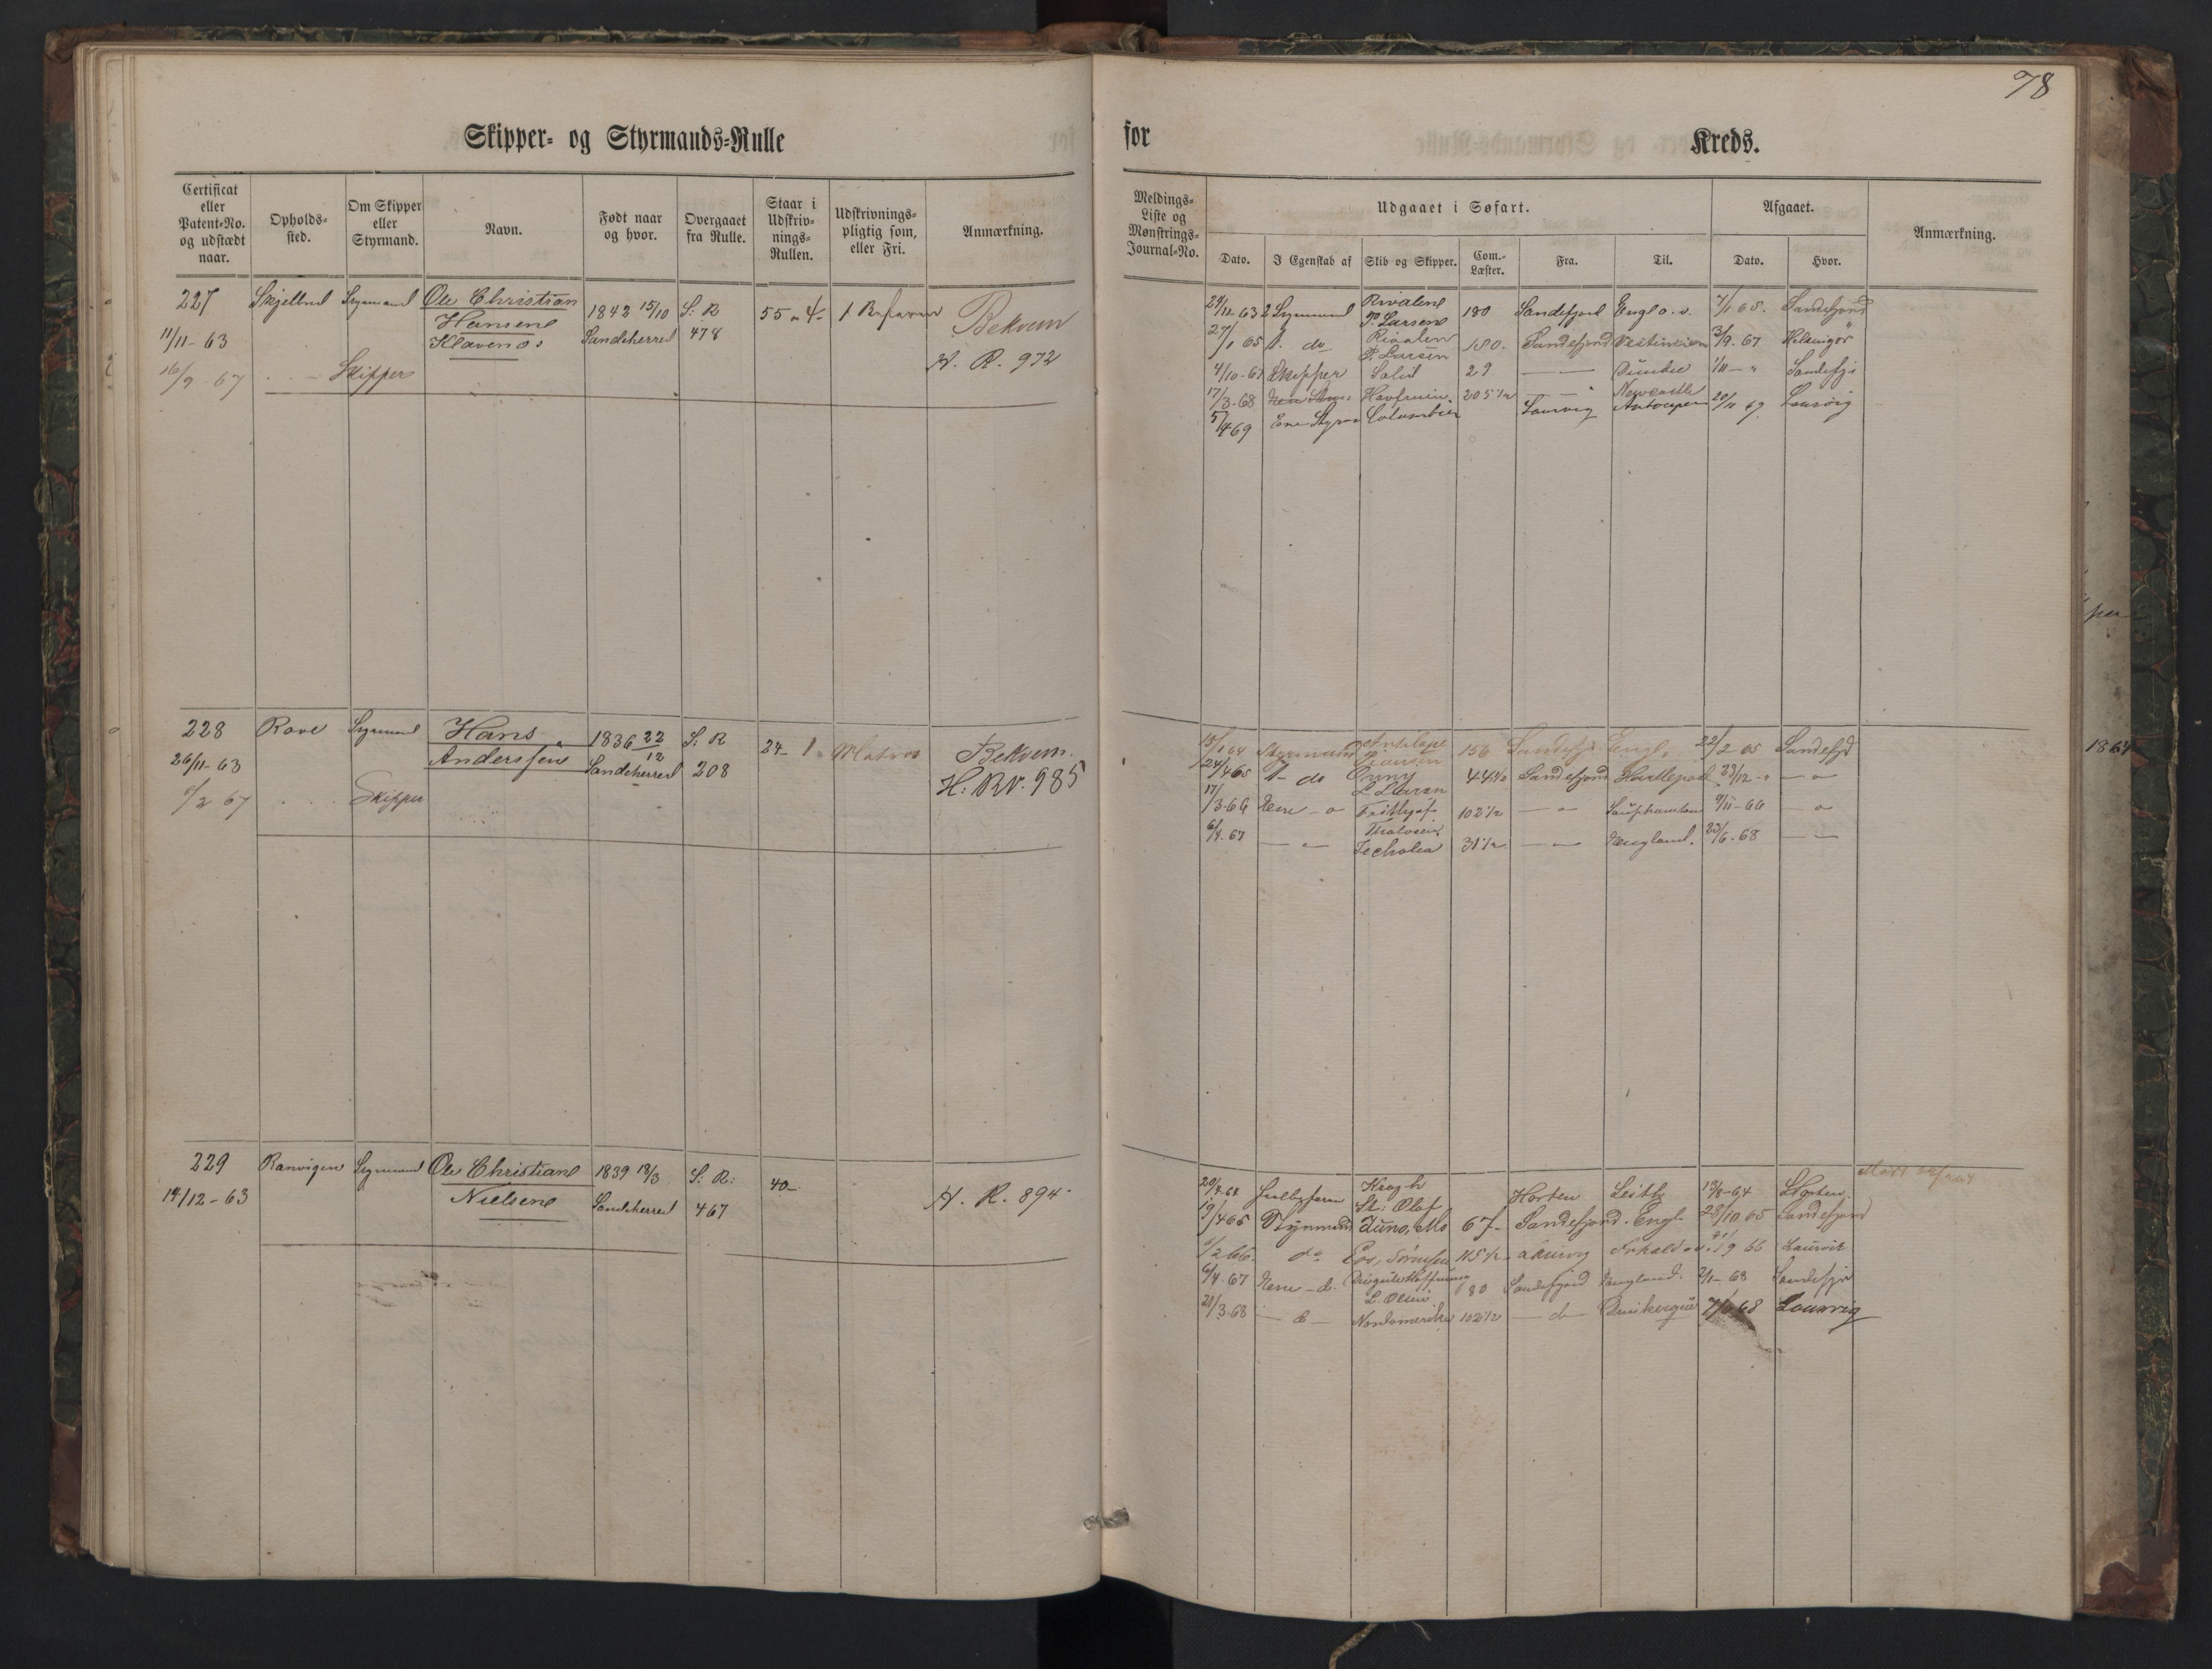 78
Skipper- og Styrmands-Rulle
for Kreds.
Certificat eller Patent-No. og udstædt naar.
Opholds-sted.
Om Skipper eller Styrmand.
Navn.
Født naar og hvor.
Overgaaet fra Rulle.
Staar i Udskriv-nings-Rullen.
Udskrivnings-pligtig som, eller Fri.
Anmærkning.
Meldings-Liste og Mønstrings-Journal-No.
Udgaaet i Søfart.
Afgaaet.
Anmærkning.
Dato.
I Egenskab af
Skib og Skipper.
Com.-Læster.
Fra.
Til.
Dato.
Hvor.
227 Styrmand Ole Christian 1843 15/10 S: R 55 - 4-
Hansen
11/11-63 Klavenes Sandeherred 478 Bekvem
H. R. 972
16/9-67 Skipper
29/12 63 2 Styrmand Rivalen 180 Sandefjord Engl o. v. 7/1 65. Sandefjord
P. Larsen
27/1 65 1. do Rivalen 180. Sandefjord 3/9. 67
P. Larsen
4/10-67 Skipper 29 Dundee 1/11 - " Sandefj:
17/3-68 Havfruen 205 1/2 Newcastle
5/4 69 Ene Styrm Columbia Laurvig Antwerpen 20/11 69 Laurvig
228 Rove Styrmand Hans 1836 22/12 S: R 24- 1- Matros Bekvem.
26/11-63 Anderssen Sandeherred 208 H: RV. 985
6/2 67 Skipper
15/1 64 Styrmand Antilope 156 Sandefj: Engl. 22/2 65 Sandefjd
24/4 65 1- do 44 1/2 Sandefjord Hartlepool 23/12 - " - " -
L. Larsen
17/3-66 Ene - " Frithjof 102 1/2 - " - 9/11-66 - " -
6/4. 67 - " - 31 1/2 - " - England. 23/6-68 - " -
229 Ranvigen Styrmand Ole Christian 1839 18/3 S: R: 40-
14/12-63 Nielsen Sandeherred 467 H. R. 894
20/4 64 Kragh Horten Leith 13/8-64 Horten.
St: Olaf
19/4 65 Styrmand Juno, Mo 67- Sandefjord. Engl- 28/10 65 Sandefjord
6/2 66. do 115 1/2 Laurvig 66 Laurvik
6/4. 67 Ene - d. 80 Sandefjord England. 2/1-68 Sandefjd
L. Olsen
21/3-68 - d - Nordamerika 102 1/2 - d - 68 Laurvig